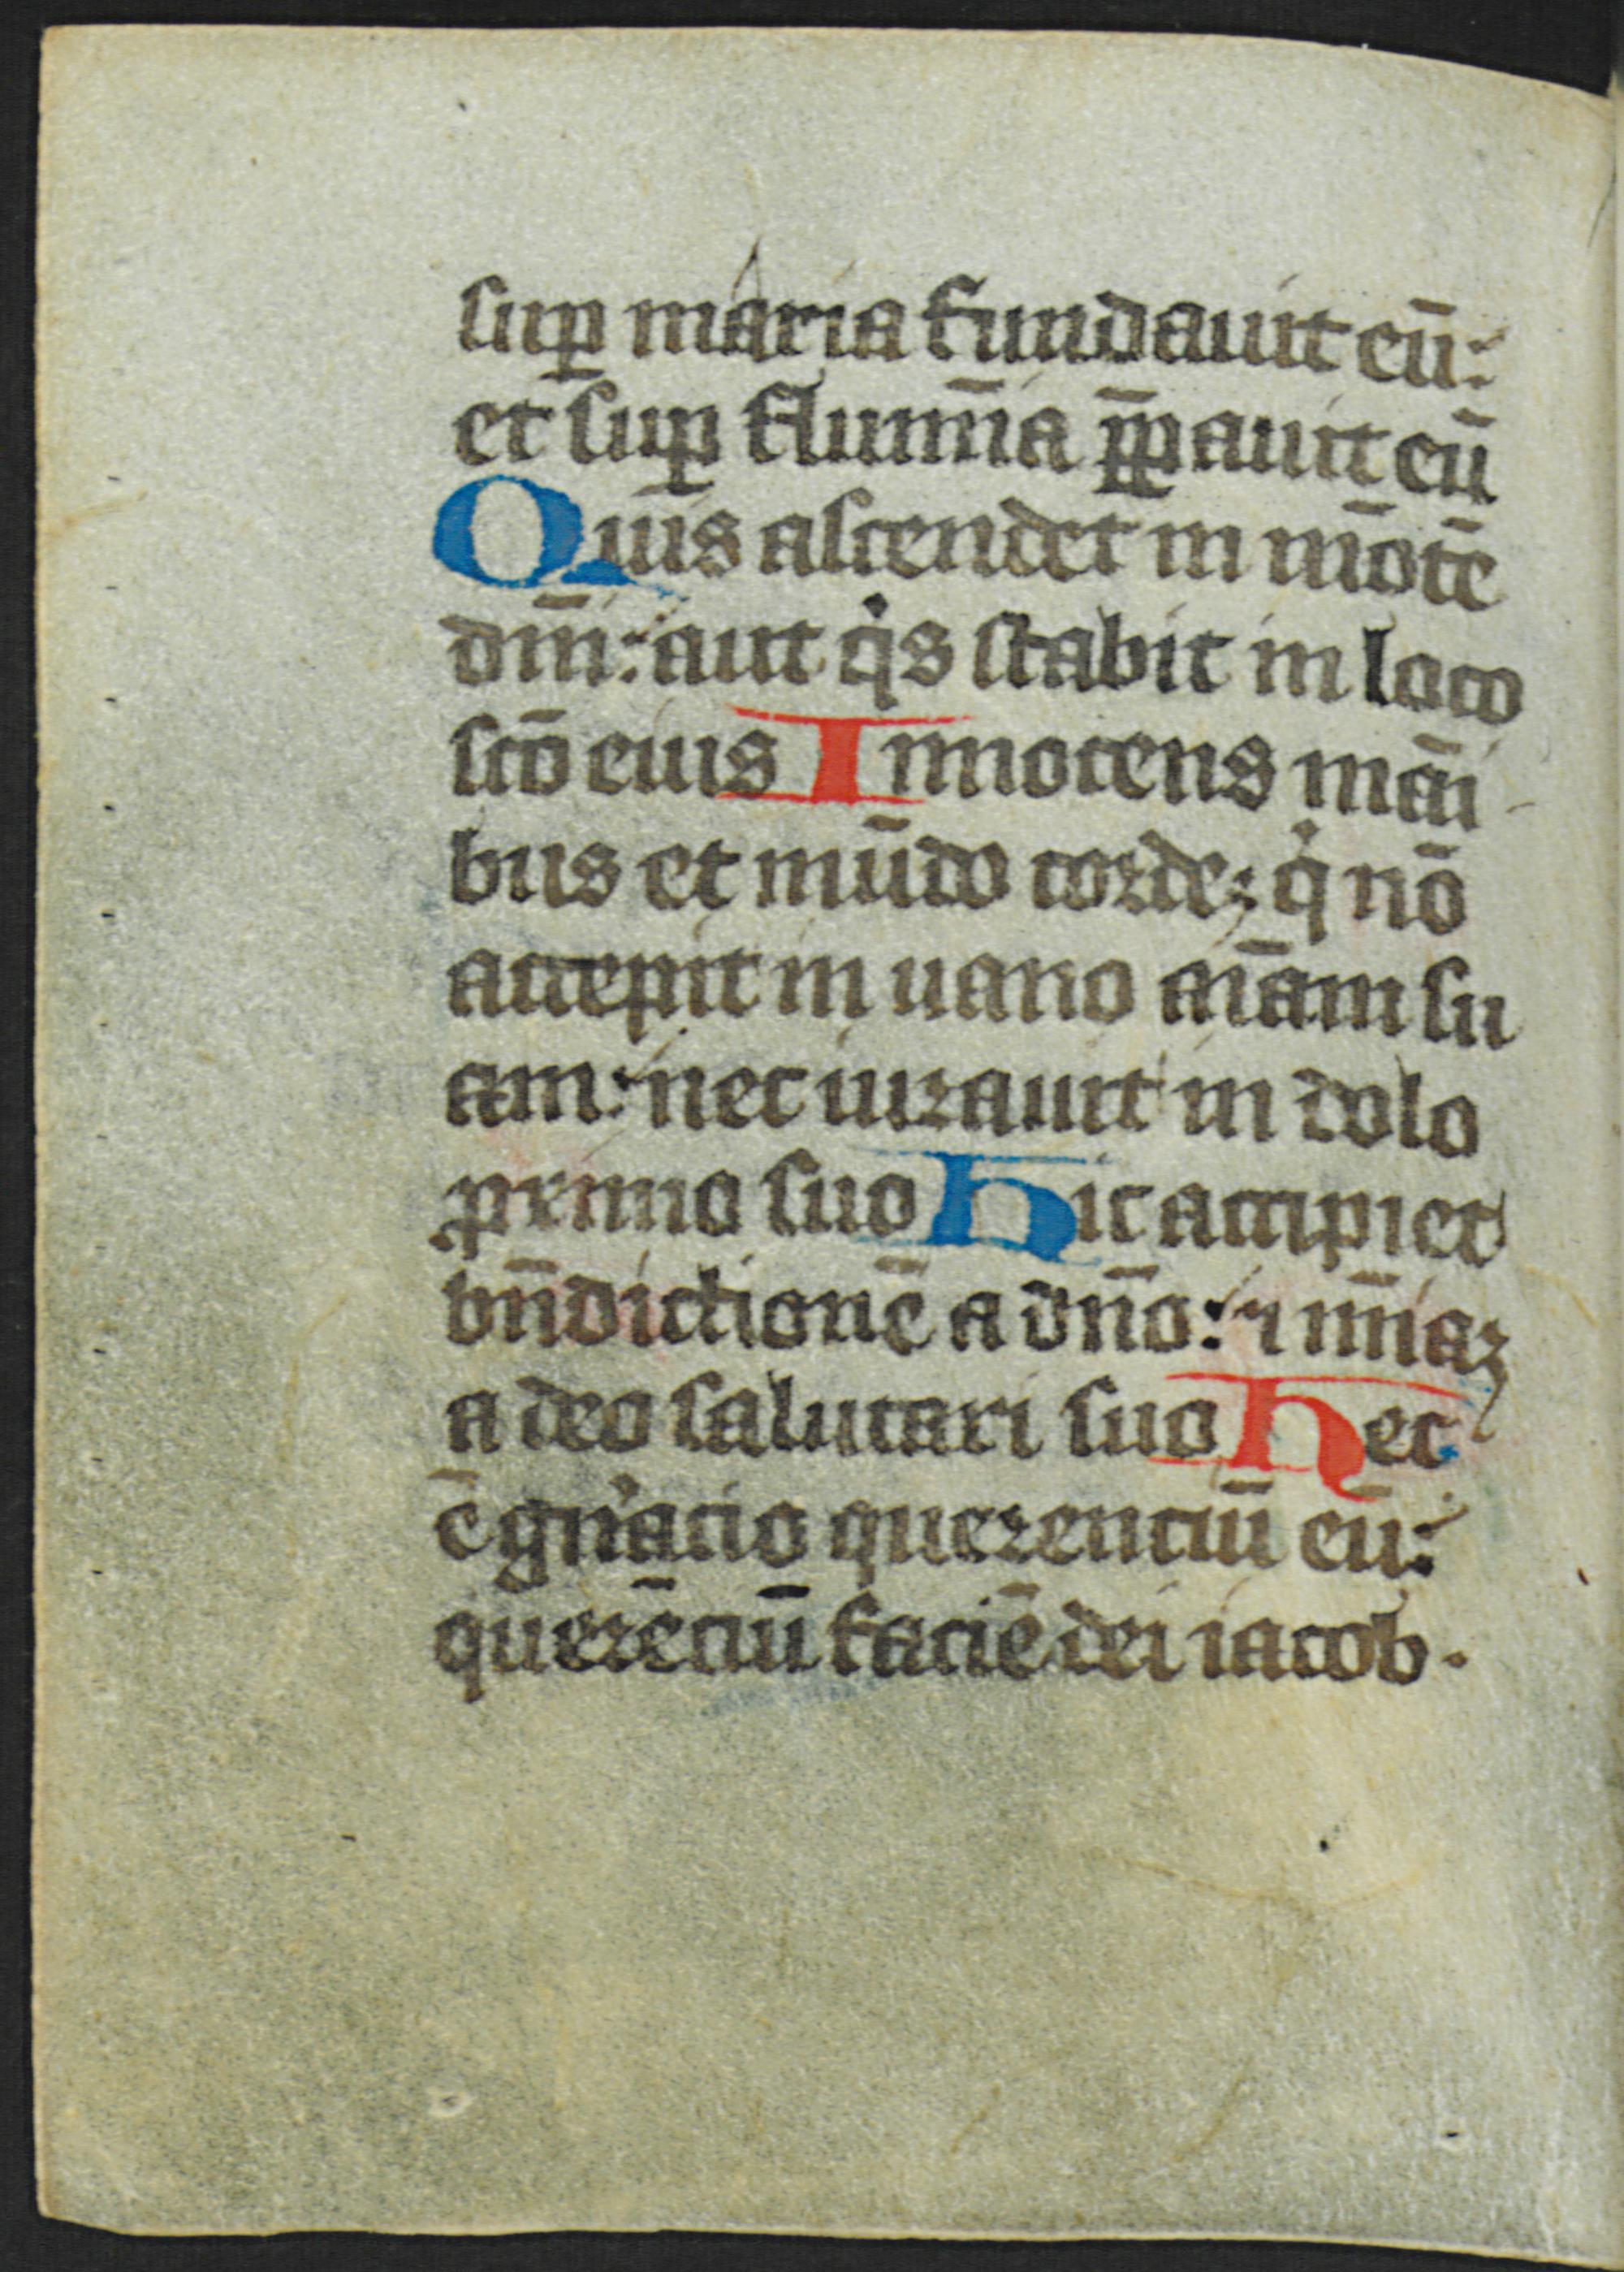 suꝑ maria fundauit eū:
et suꝑ flumīa p̄ꝑauit eū
Quis ascendet in mōtē
dm̄: aut qͥs stabit in loco
scō eius Innocens māi
bus et mūdo corde; qͥ nō
accepit in uano aīam su
am: nec iurauit in dolo
ꝓximo suo Hic accipiet
bn̄dictionē a dn̄o: ⁊ mīaꝫ
a deo salutari suo Hec
ē gn̄'acio querenciū eū:
querēciū faciē dei iacob.